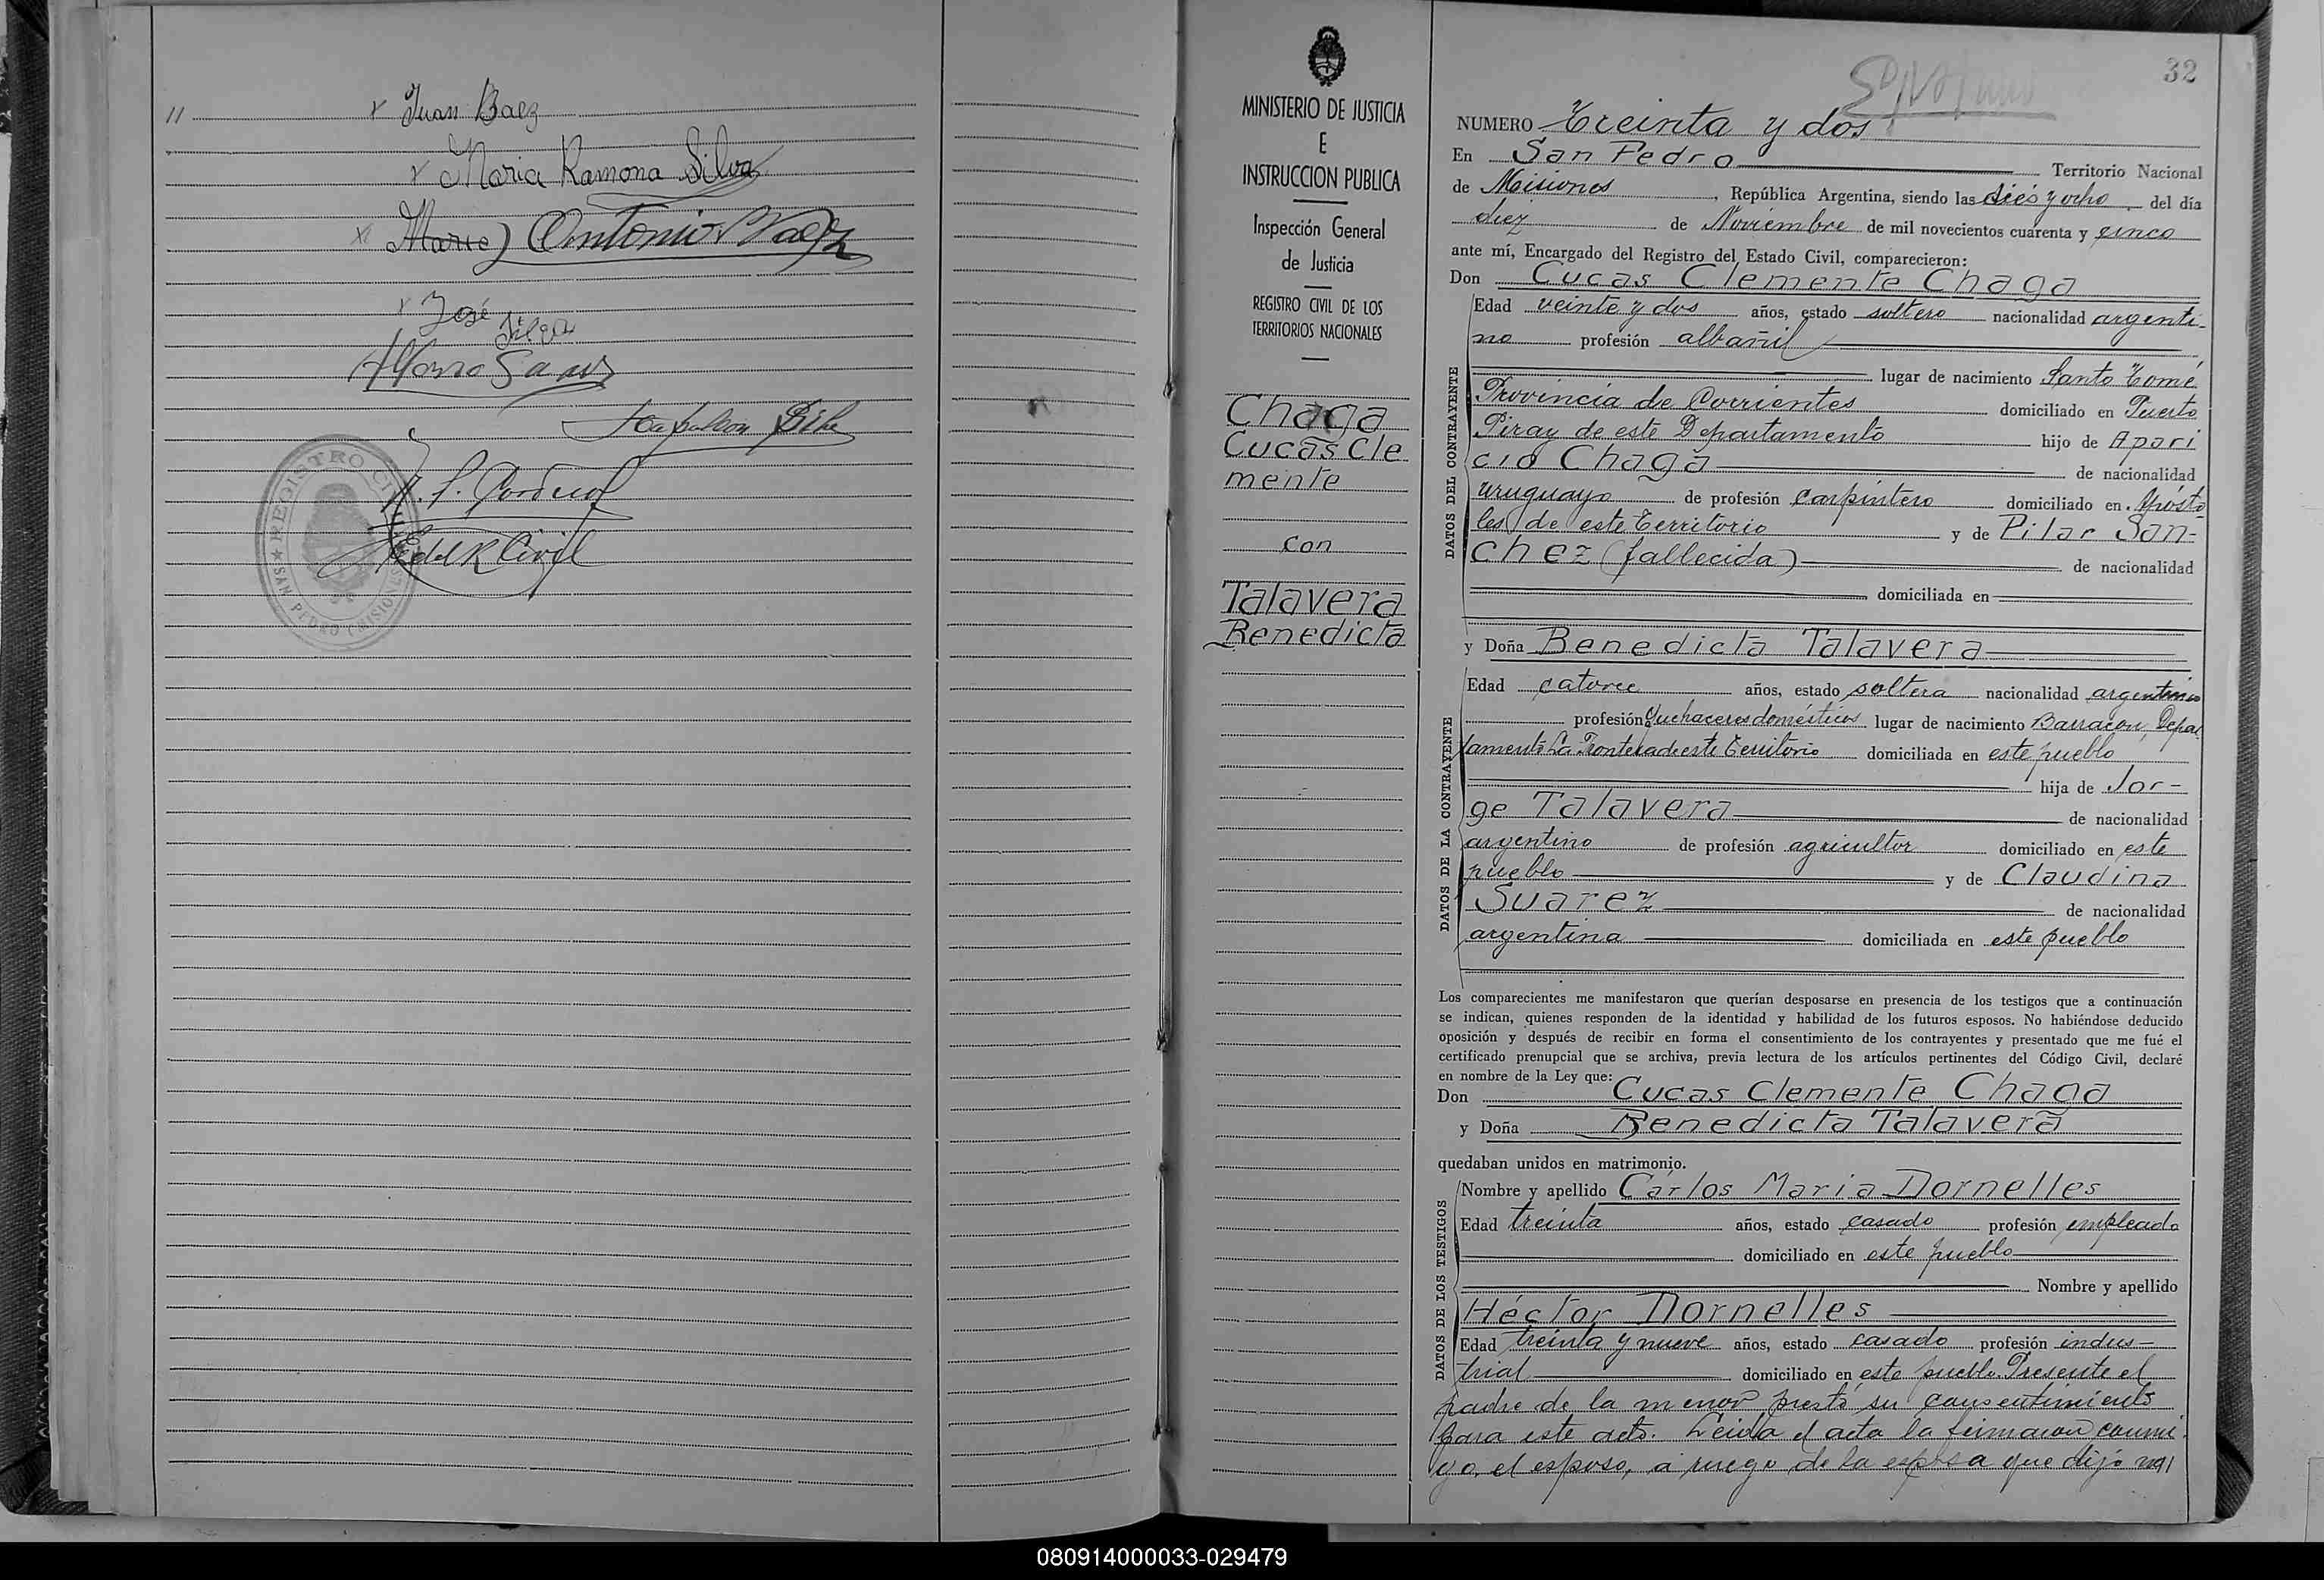 11
x Juan Baez
x Maria Ramona Silva
x Antonio Baez
x José
Silva
Alfonso
Napoleon
E del R Civil
REGISTRO CIVIL
★ SAN PEDRO (MISIONES)
MINISTERIO DE JUSTICIA
E
INSTRUCCION PUBLICA
Inspección General
de Justicia
REGISTRO CIVIL DE LOS
TERRITORIOS NACIONALES
Chaga
Lucas Cle
mente
con
Talavera
Benedicta
32
NUMERO Treinta y dos
En San Pedro Territorio Nacional
de Misiones, República Argentina, siendo las diés y ocho del día
diez de Noviembre de mil novecientos cuarenta y cinco
ante mí, Encargado del Registro del Estado Civil, comparecieron:
Don Lucas Clemente Chaga
DATOS DEL CONTRAYENTE
Edad veinte y dos años, estado soltero nacionalidad argenti-
no profesión albañil
lugar de nacimiento Santo Tomé
Provincia de Corrientes domiciliado en Puerto
Piray de este Departamento hijo de Apari
cio Chaga de nacionalidad
uruguayo de profesión carpintero domiciliado en Apósto
les de este Territorio y de Pilar San-
chez (fallecida) de nacionalidad
domiciliada en
y Doña Benedicta Talavera
DATOS DE LA CONTRAYENTE
Edad catorce años, estado soltera nacionalidad argentina
profesión Quehaceres domésticos lugar de nacimiento Barracon, Depar
tamento La Frontera de este Territorio domiciliada en este pueblo
hija de Jor-
ge Talavera de nacionalidad
argentino de profesión agricultor domiciliado en este
pueblo y de Claudina
Suarez de nacionalidad
argentina domiciliada en este pueblo
Los comparecientes me manifestaron que querían desposarse en presencia de los testigos que a continuación
se indican, quienes responden de la identidad y habilidad de los futuros esposos. No habiéndose deducido
oposición y después de recibir en forma el consentimiento de los contrayentes y presentado que me fué el
certificado prenupcial que se archiva, previa lectura de los artículos pertinentes del Código Civil, declaré
en nombre de la Ley que:
Don Lucas Clemente Chaga
y Doña Benedicta Talavera
quedaban unidos en matrimonio.
DATOS DE LOS TESTIGOS
Nombre y apellido Carlos Maria Dornelles
Edad treinta años, estado casado profesión empleado
domiciliado en este pueblo
Nombre y apellido
Héctor Dornelles
Edad treinta y nueve años, estado casado profesión indus-
trial domiciliado en este pueblo. Presente el
padre de la menor prestó su consentimiento
para este acto. Leida el acta la firmaron conmi
go, el esposo, a ruego de la esposa que dijo no
080914000033-029479